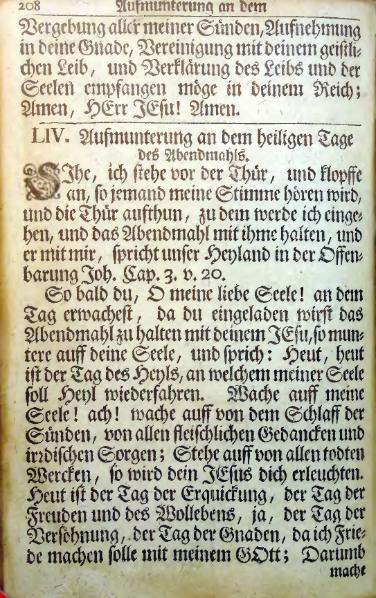 208 Aufmunterung an dem
Vergebung aller meiner Sünden, Aufnehmung
in deine Gnade, Vereinigung mit deinem geistli-
chen Leib, und Verklärung des Leibs und der
Seelen empfangen möge in deinem Reich;
Amen, HErr JEsu! Amen.
LIV. Aufmunterung an dem heiligen Tage
des Abendmahls.
SIhe, ich stehe vor der Thür, und klopffe
an, so jemand meine Stimme hören wird,
und die Thür aufthun, zu dem werde ich einge-
hen, und das Abendmahl mit ihme halten, und
er mit mir, spricht unser Heyland in der Offen-
barung Joh. Cap. 3. v. 20.
So bald du, O meine liebe Seele! an dem
Tag erwachest, da du eingeladen wirst das
Abendmahl zu halten mit deinem JEsu, so mun-
tere auff deine Seele, und sprich: Heut, heut
ist der Tag des Heyls, an welchem meiner Seele
soll Heyl wiederfahren. Wache auff meine
Seele! ach! wache auff von dem Schlaff der
Sünden, von allen fleischlichen Gedancken und
irrdischen Sorgen; Stehe auff von allen todten
Wercken, so wird dein JEsus dich erleuchten.
Heut ist der Tag der Erquickung, der Tag der
Freuden und des Wollebens, ja, der Tag der
Versöhnung, der Tag der Gnaden, da ich Frie-
de machen solle mit meinem GOtt; Darumb
mache